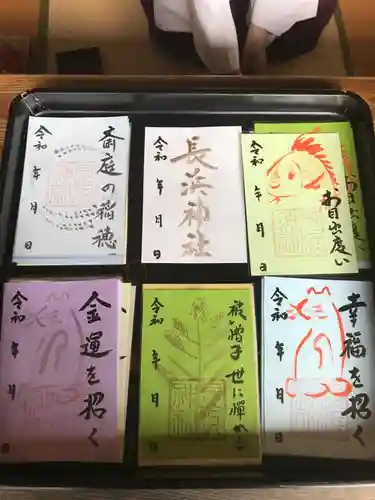 斎庭の稲穂
令和 年 月 日
長浜神社
令和 年 月 日
お目出度い
令和 年 月 日
金運を招く
令和 年 月 日
世に憚かる
令和 年 月 日
幸福を招く
令和 年 月 日